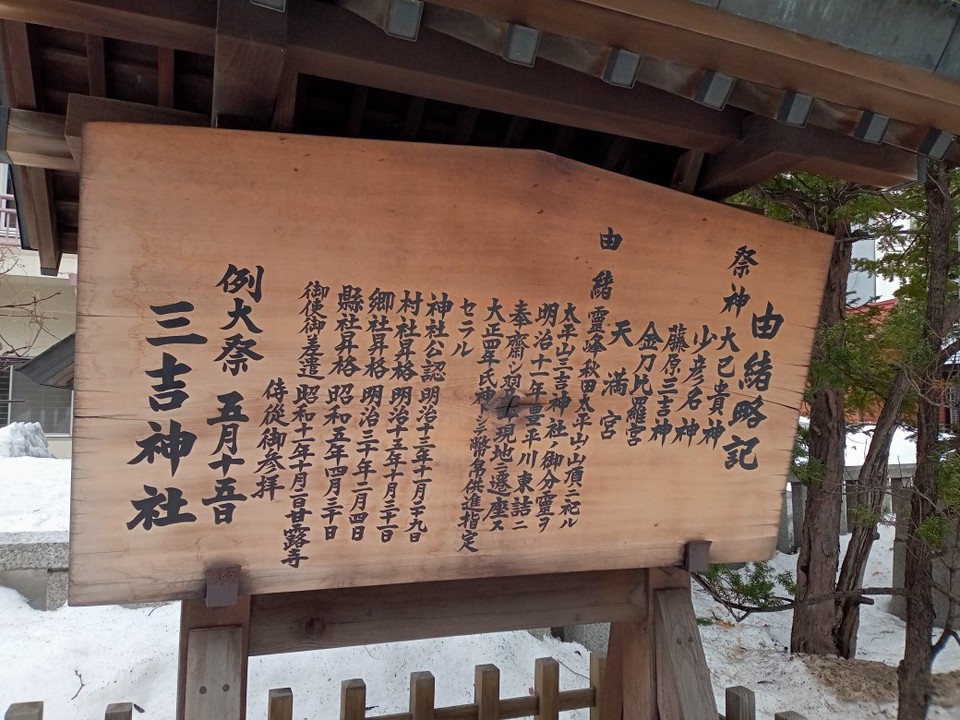 由緒略記
祭神 大己貴神
少彦名神
藤原三吉神
金刀比羅宮
天満宮
由緒 靈峰秋田太平山山頂ニ祀ル
太平山三吉神社ノ御分靈ヲ
明治十一年豊平川東詰ニ
奉齋シ翌十 現地ニ遷座ス
大正四年氏神トシ幣帛供進指定
セラル
神社公認 明治十三年十一月廿九日
村社昇格 明治十五年十月三十一日
郷社昇格 明治三十年二月四日
縣社昇格 昭和五年四月三十日
御使御差遣 昭和十一年十月二日甘露寺
侍從御参拝
例大祭 五月十五日
三吉神社